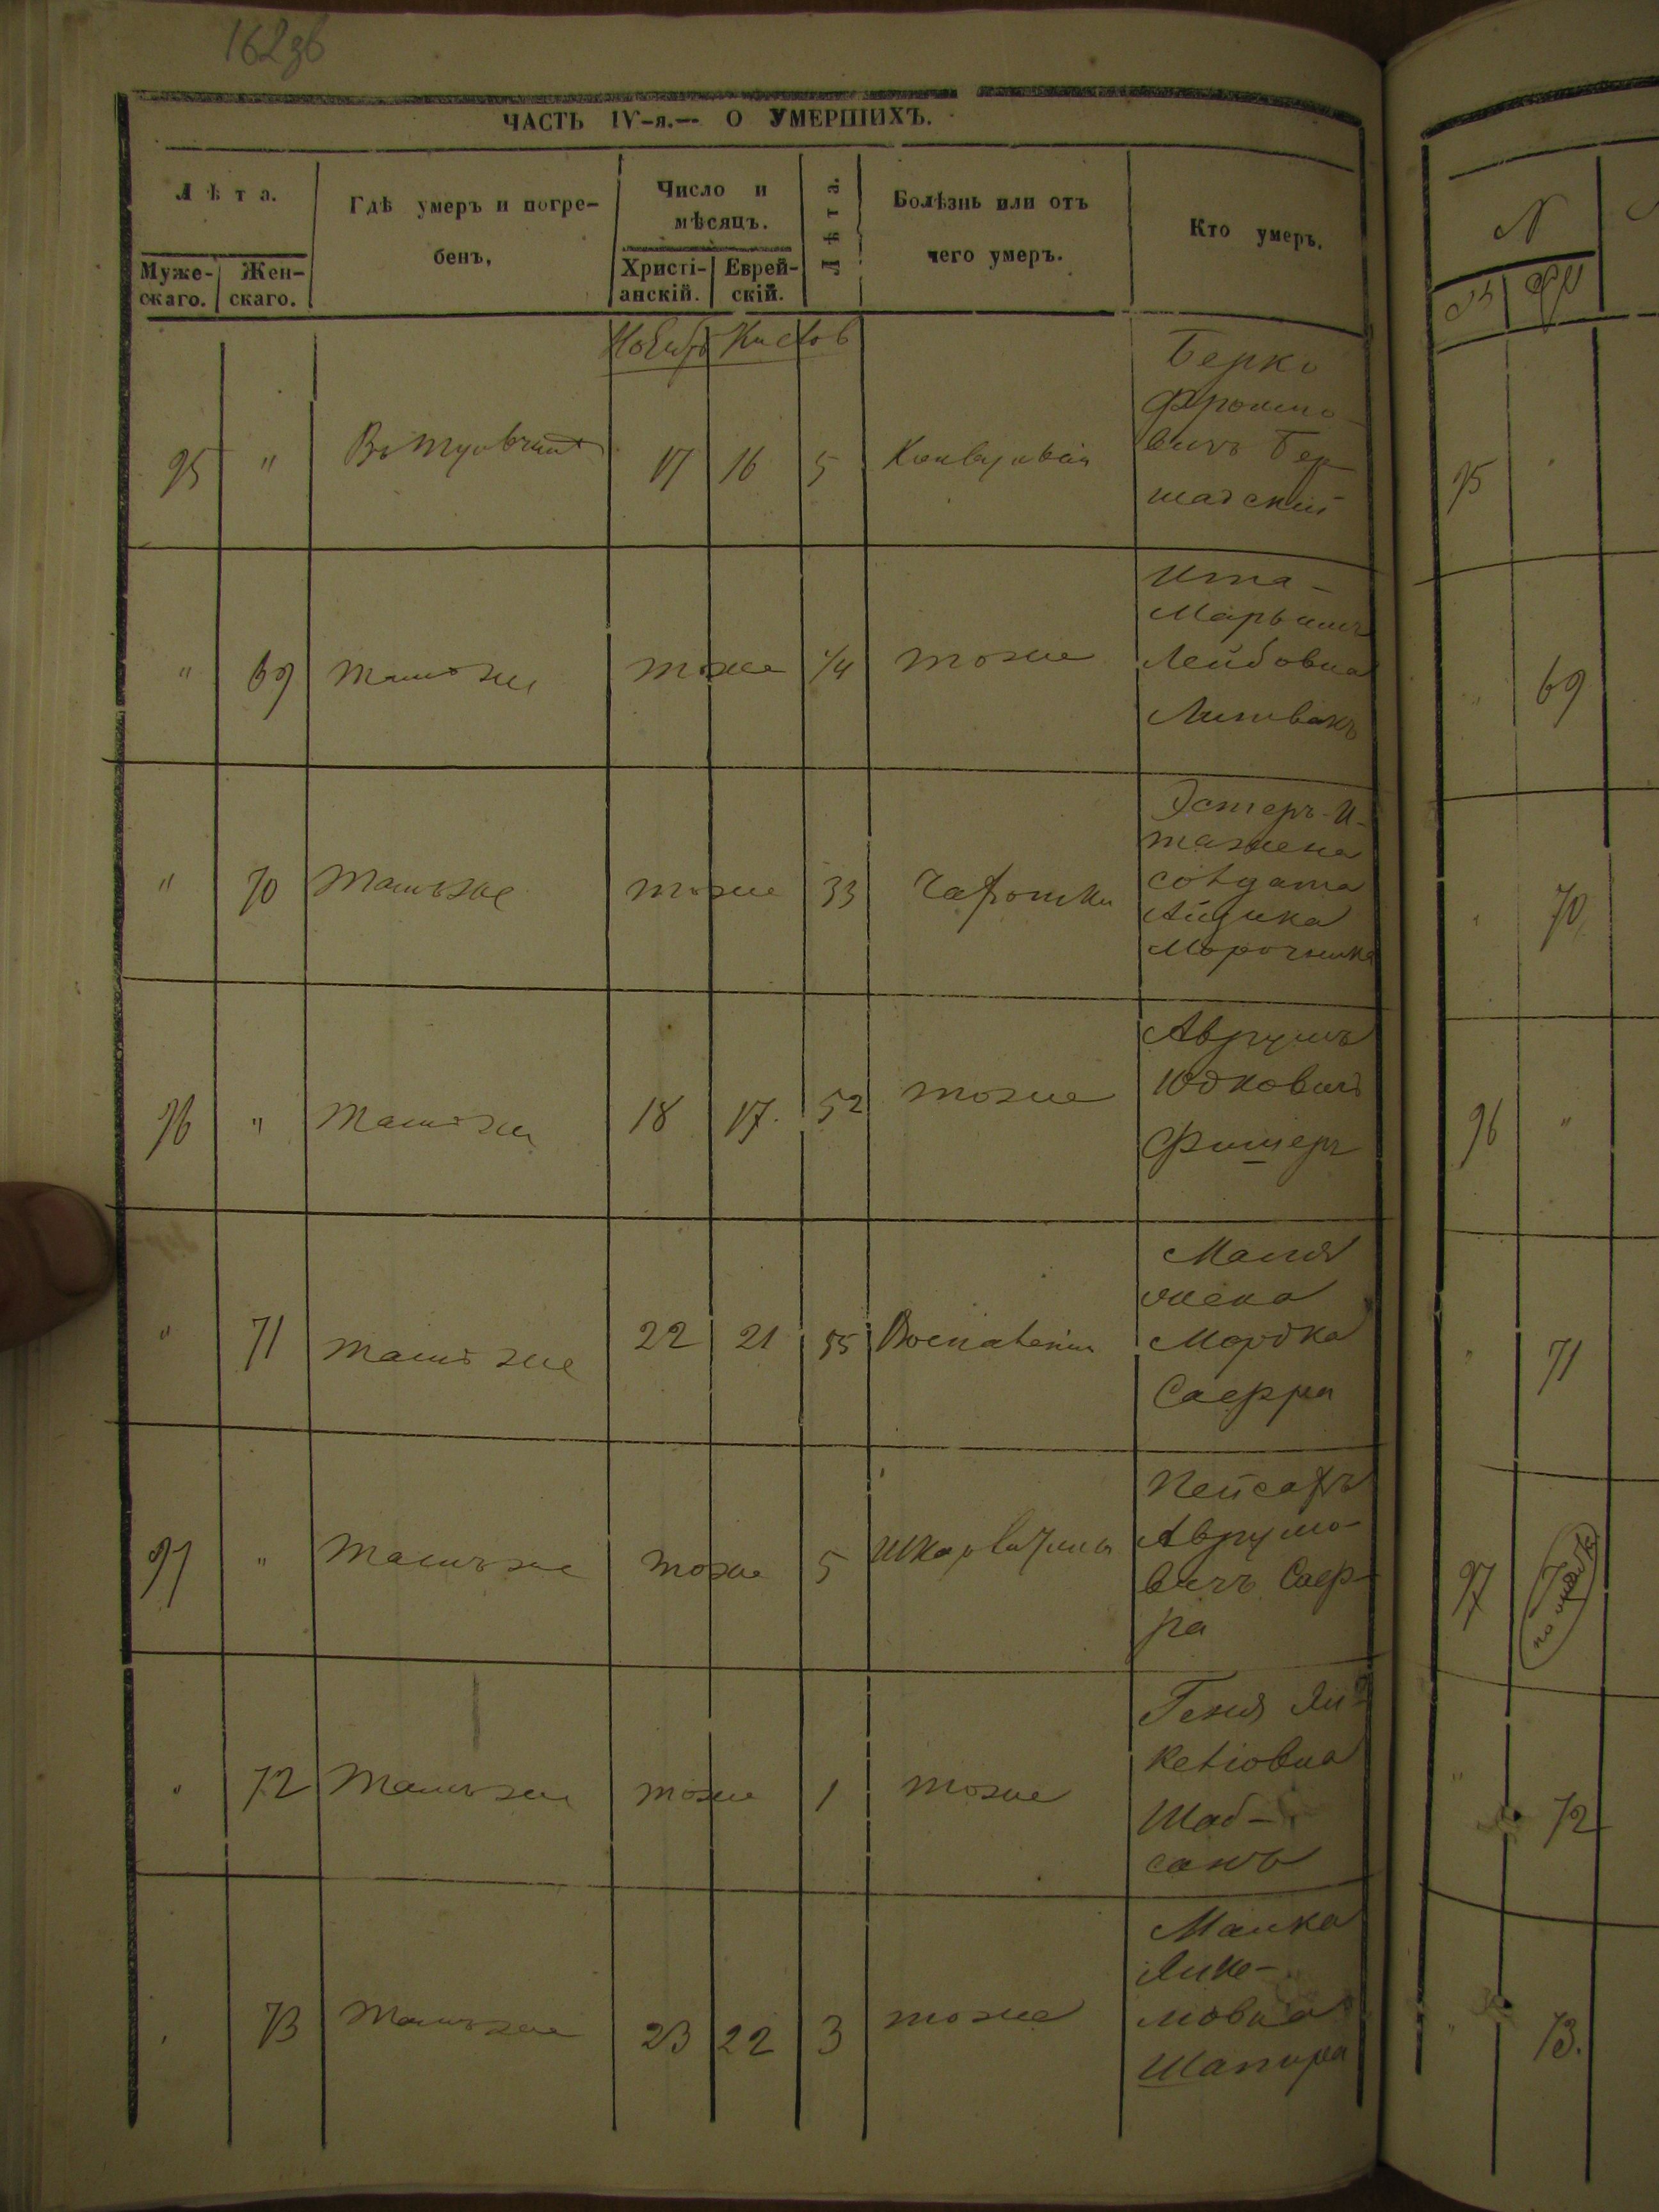 162зв
ЧАСТЬ IV-я.— О УМЕРШИХЪ.
Лѣта.
Муже-
скаго.
Жен-
скаго.
Гдѣ умеръ и погре-
бенъ,
Число и
мѣсяцъ.
Христі-
анскій.
Еврей-
скій.
Лѣта.
Болѣзнь или отъ
чего умеръ.
Кто умеръ.
Ноябрь Кислов
95 " 17 16 5
Берко
Фроимо
вичъ Бер
шадский
" 69 тамъ же тоже 1/4 тоже
Ита-
Марьимъ
Лейбовна
Литвакъ
" 70 тамъ же тоже 33 Чахотки
Эстеръ-И-
та жена
солдата
Айзика
Морочника
96 " тамъ же 18 17 52 тоже
Аврумъ
Юдковичъ
Фишеръ
" 71 тамъ же 22 21 55 Воспаленія
Маня
жена
Мордка
Саерра
97 " тамъ же тоже 5 шкарлатины
Пейсахъ
Аврумо-
вичъ Саер-
ра
" 72 тамъ же тоже 1 тоже
Геня Ян-
келіовна
Шаб-
санъ
" 73 тамъ же 23 22 3 тоже
Малка
Янке-
ловна
Шапира
N
95
" 69
" 70
96 "
" 71
97
" 72
" 73.